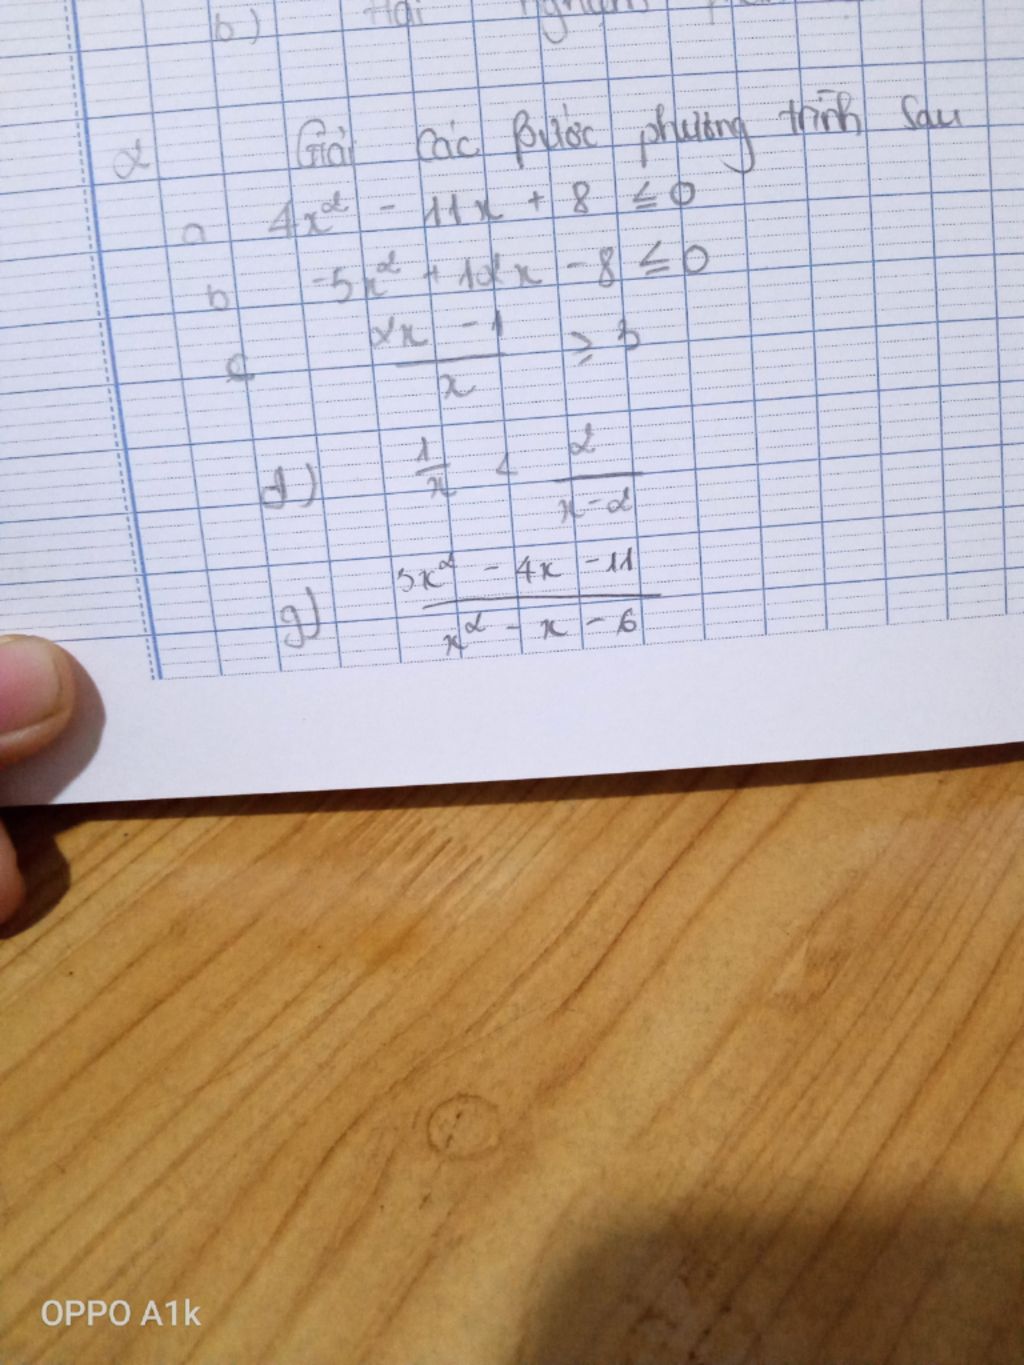 b)
2 Giải các bước phương trình sau
a 4x² - 11x + 8 ≤ 0
b -5x² + 12x - 8 ≤ 0
c (2x - 1)/x ≥ 3
d) 1/x < 2/(x-2)
g) (3x² - 4x - 11)/(x² - x - 6)
OPPO A1k